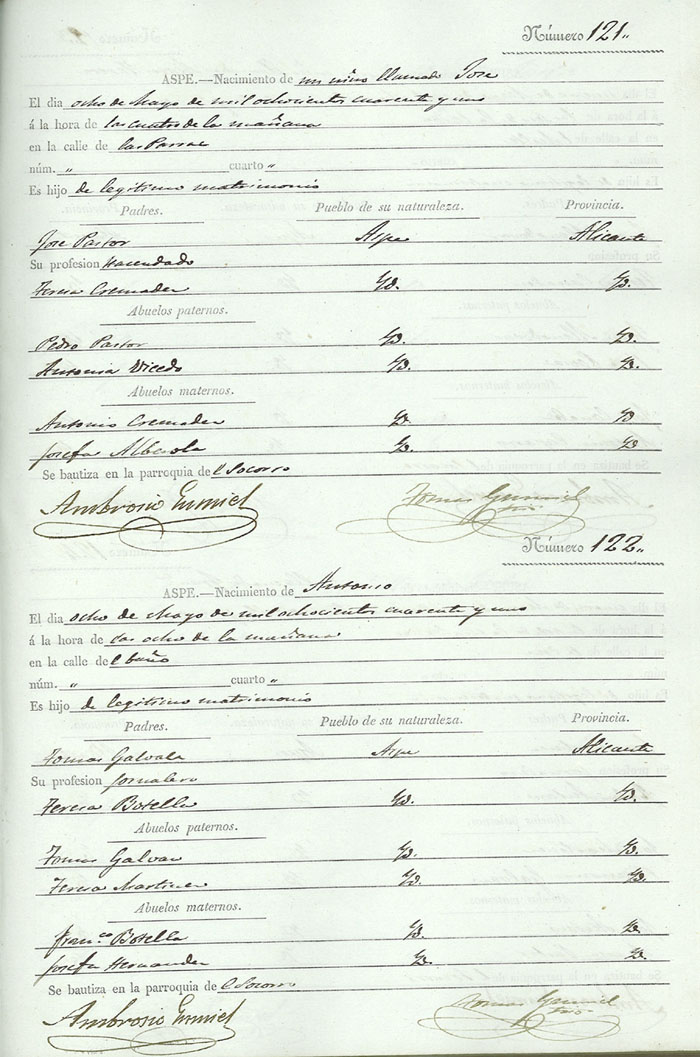 Número 121„
ASPE.—Nacimiento de un niño llamado Jose
El dia ocho de Mayo de mil ochocientos cuarenta y uno
á la hora de las cuatro de la mañana
en la calle de las Parras
núm. „ cuarto „
Es hijo de legitimo matrimonio
Padres. Pueblo de su naturaleza. Provincia.
Jose Pastor Aspe Alicante
Su profesion Hacendado
Teresa Cremades Yd. Yd.
Abuelos paternos.
Pedro Pastor Yd. Yd.
Antonia Vicedo Yd. Yd.
Abuelos maternos.
Antonio Cremades Yd. Yd
Josefa Alberola Yd. Yd
Se bautiza en la parroquia del Socorro
Ambrosio Tomas
Número 122„
ASPE.—Nacimiento de Antonio
El dia ocho de Mayo de mil ochocientos cuarenta y uno
á la hora de las ocho de la mañana
en la calle del baño
núm. „ cuarto „
Es hijo de legitimo matrimonio
Padres. Pueblo de su naturaleza. Provincia.
Tomas Aspe Alicante
Su profesion jornalero
Teresa Botella Yd. Yd.
Abuelos paternos.
Tomas Galvan Yd. Yd.
Teresa Martinez Yd. Yd.
Abuelos maternos.
Fran.co Botella Yd. Yd.
Josefa Hernandez Yd. Yd.
Se bautiza en la parroquia del Socorro
Ambrosio Tomas